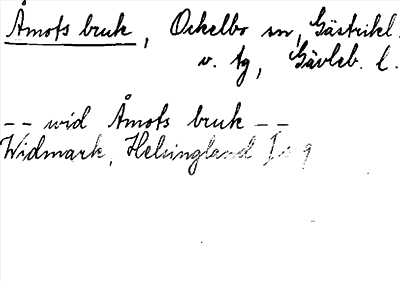 Åmots bruk, Ockelbo sn, Gästrikl.
v. tg, Gävleb. l.
-- wid Åmots bruk --
Widmark, Helsingland I: 9